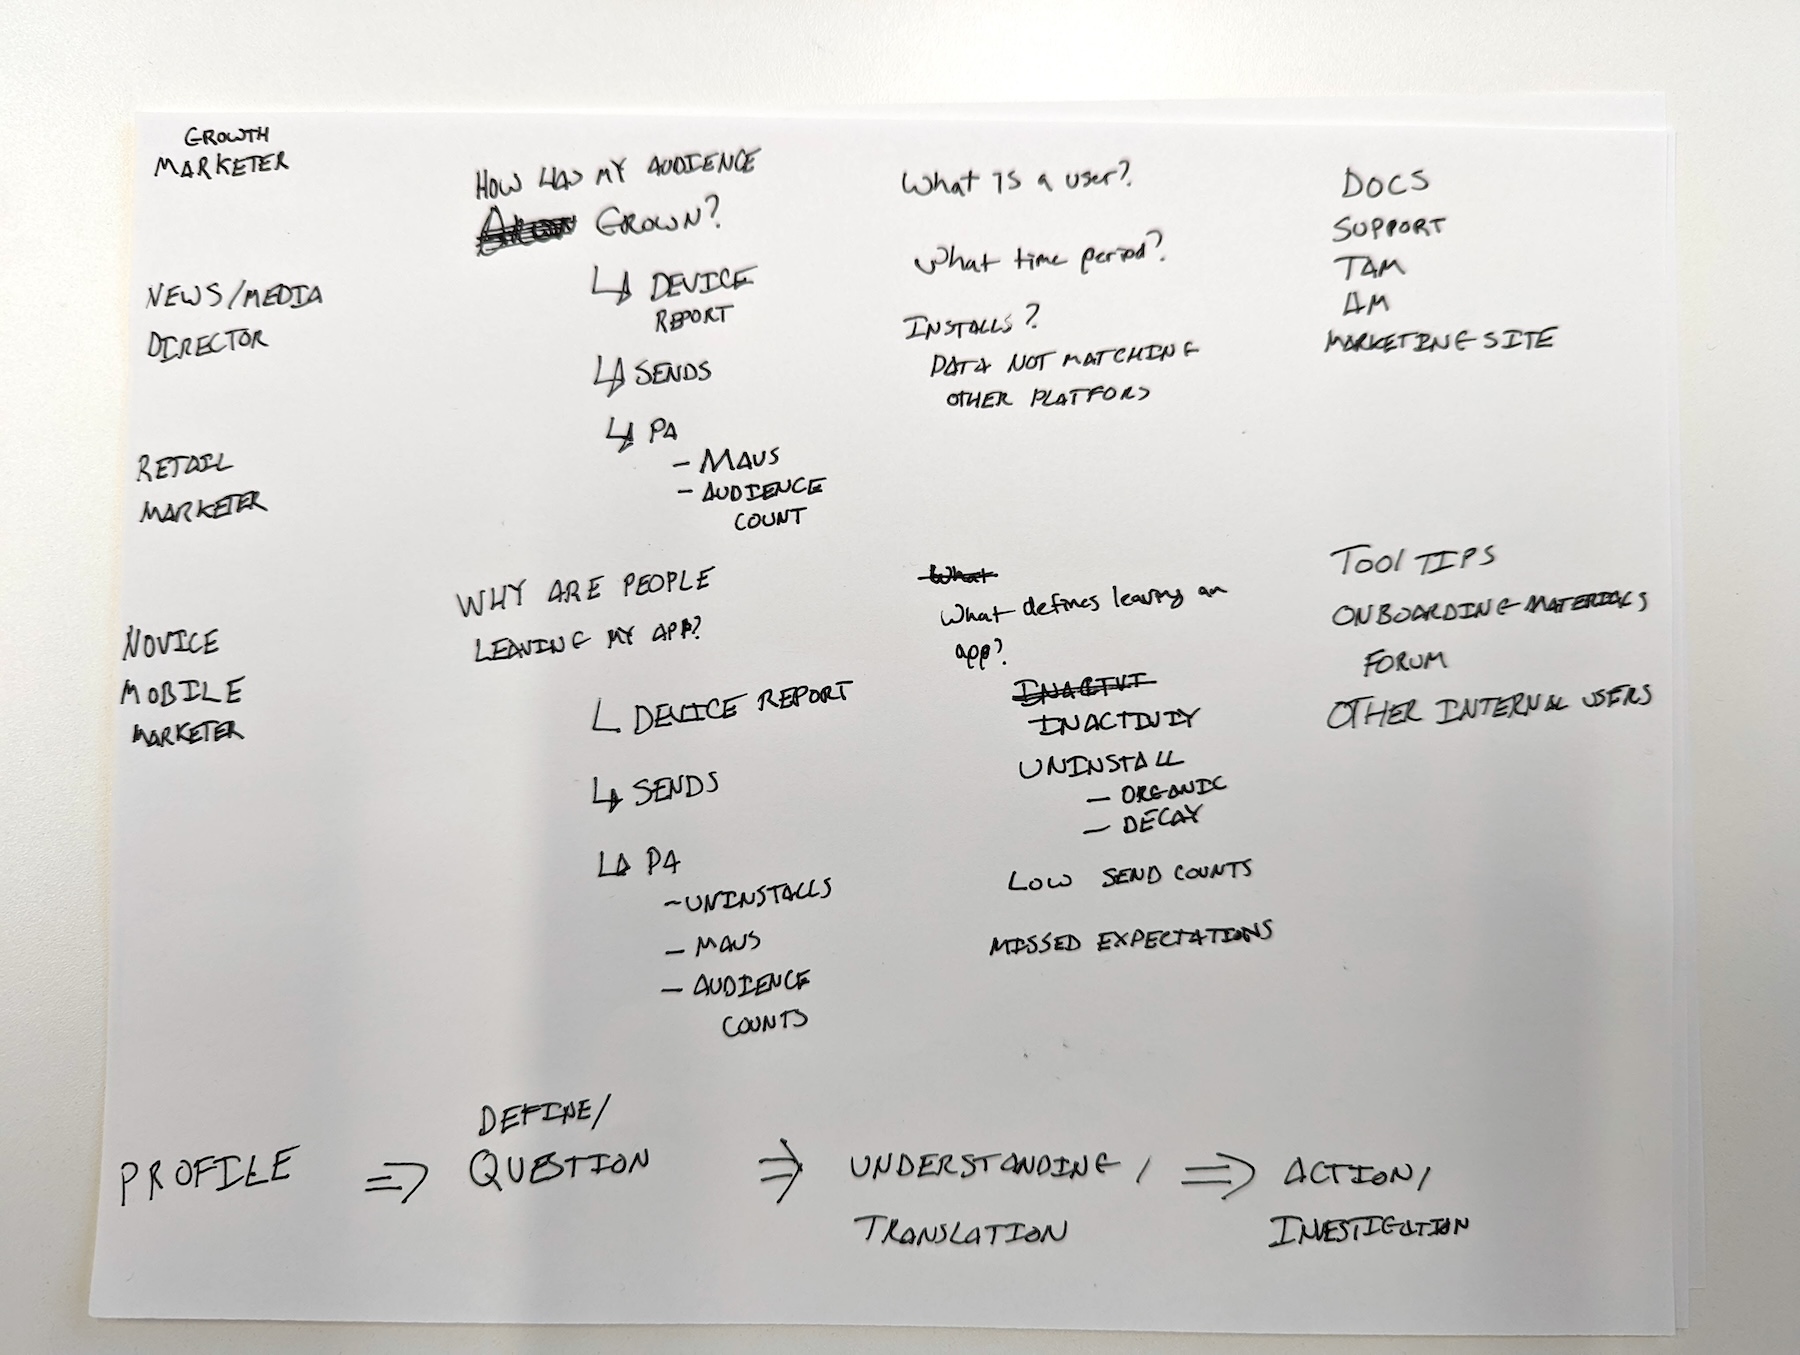 GROWTH
MARKETER
NEWS/MEDIA
DIRECTOR
RETAIL
MARKETER
NOVICE
MOBILE
MARKETER
HOW HAS MY AUDIENCE
GROWN?
↳ DEVICE
REPORT
↳ SENDS
↳ PA
- MAUS
- AUDIENCE
COUNT
WHY ARE PEOPLE
LEAVING MY APP?
↳ DEVICE REPORT
↳ SENDS
↳ PA
- UNINSTALLS
- MAUS
- AUDIENCE
COUNTS
What is a user?
What time period?
INSTALLS?
DATA NOT MATCHING
OTHER PLATFORS
What
What defines leaving an
app?
INACTIVITY
UNINSTALL
- ORGANIC
- DECAY
LOW SEND COUNTS
MISSED EXPECTATIONS
DOCS
SUPPORT
TAM
AM
MARKETING SITE
TOOL TIPS
ONBOARDING MATERIALS
FORUM
OTHER INTERNAL USERS
PROFILE ⇒ DEFINE/
QUESTION ⇒ UNDERSTANDING/
TRANSLATION ⇒ ACTION/
INVESTIGATION